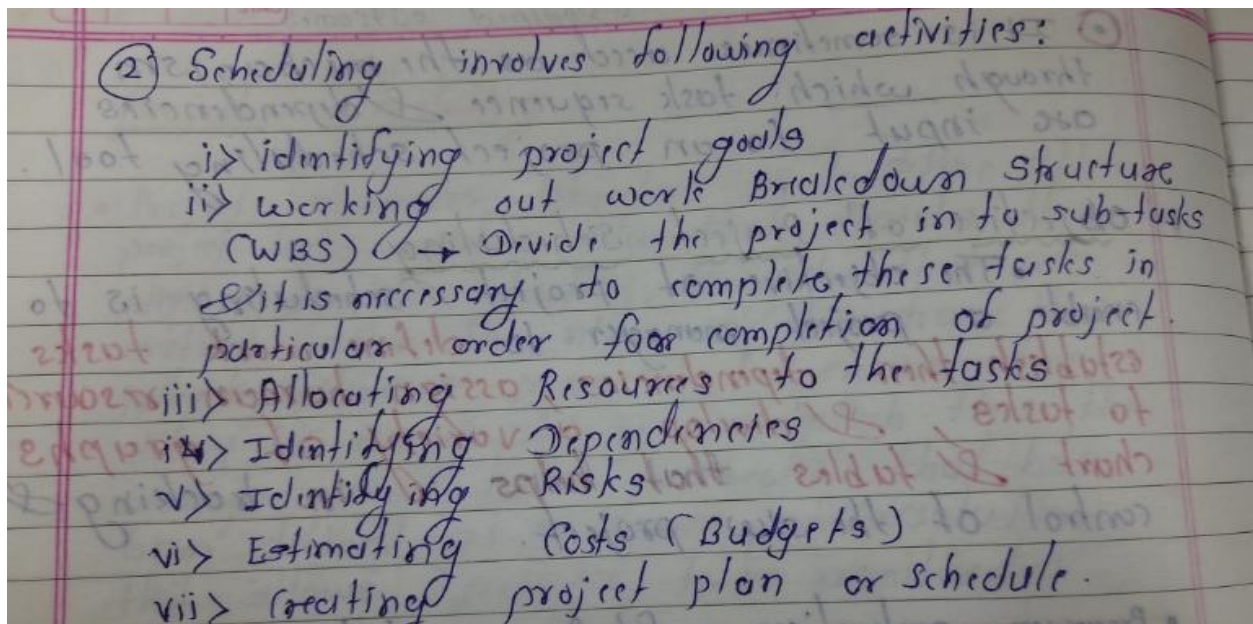 ② Scheduling involves following activities:
i> identifying project goals
ii> working out work Breakdown Structure
(WBS) → Divide the project in to sub-tasks
& it is necessary to complete these tasks in
particular order for completion of project.
iii> Allocating Resources to the tasks
iv> Identifying Dependencies
v> Identifying Risks
vi> Estimating Costs (Budgets)
vii> Creating project plan or schedule.